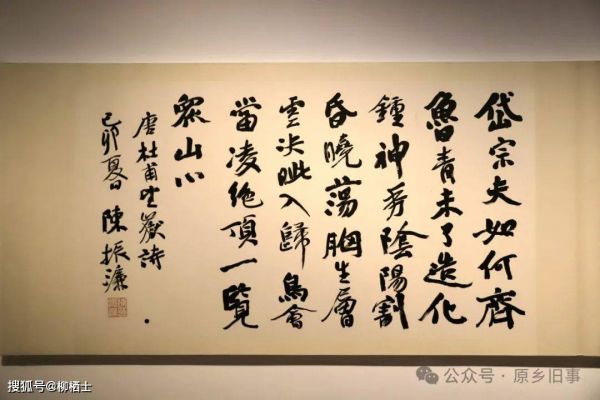 岱宗夫如何齊
魯青未了造化
鍾神秀陰陽割
昏曉蕩胸生層
雲決眦入歸鳥會
當凌絕頂一覽
眾山小
唐杜甫望嶽詩
己卯夏日 陳振濂
搜狐号@柳栖士
公众号 · 原乡旧事